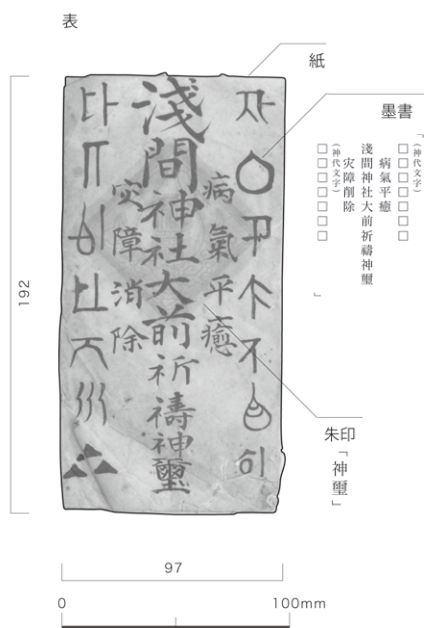 表
紙
墨書
「(神代文字)
□□□□□□□
病氣平癒
淺間神社大前祈禱神璽
灾障削除
(神代文字)
□□□□□□□」
病氣平癒
淺間神社大前祈禱神璽
灾障消除
朱印
「神璽」
192
97
0 100mm